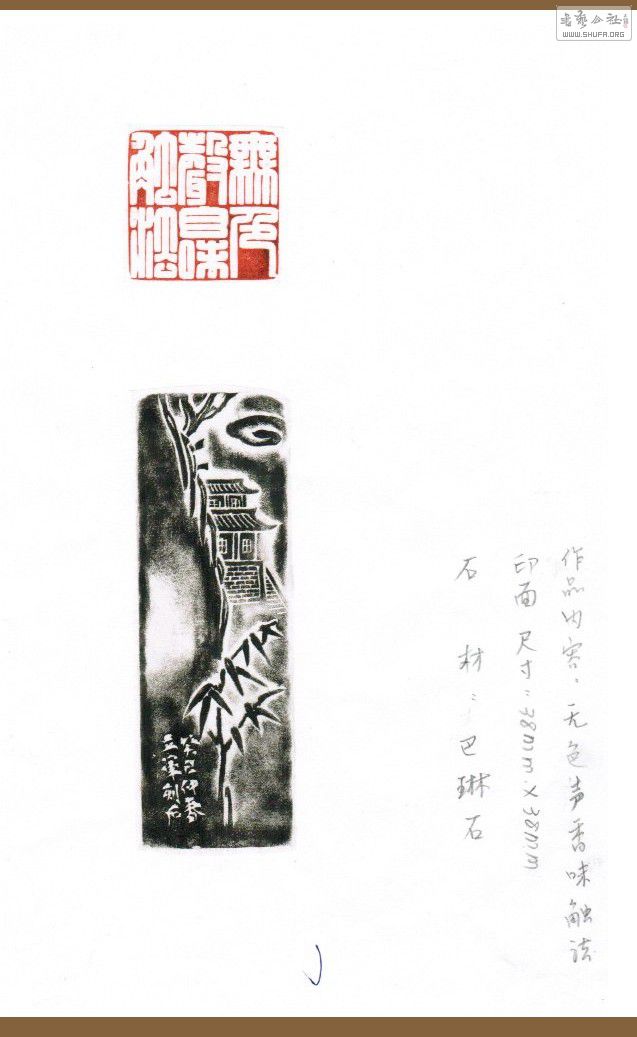 书艺公社
WWW.SHUFA.ORG
無色
聲香味
觸法
癸巳仲春
作品内容:无色声香味触法
印面尺寸:38mm×38mm
石材:巴琳石